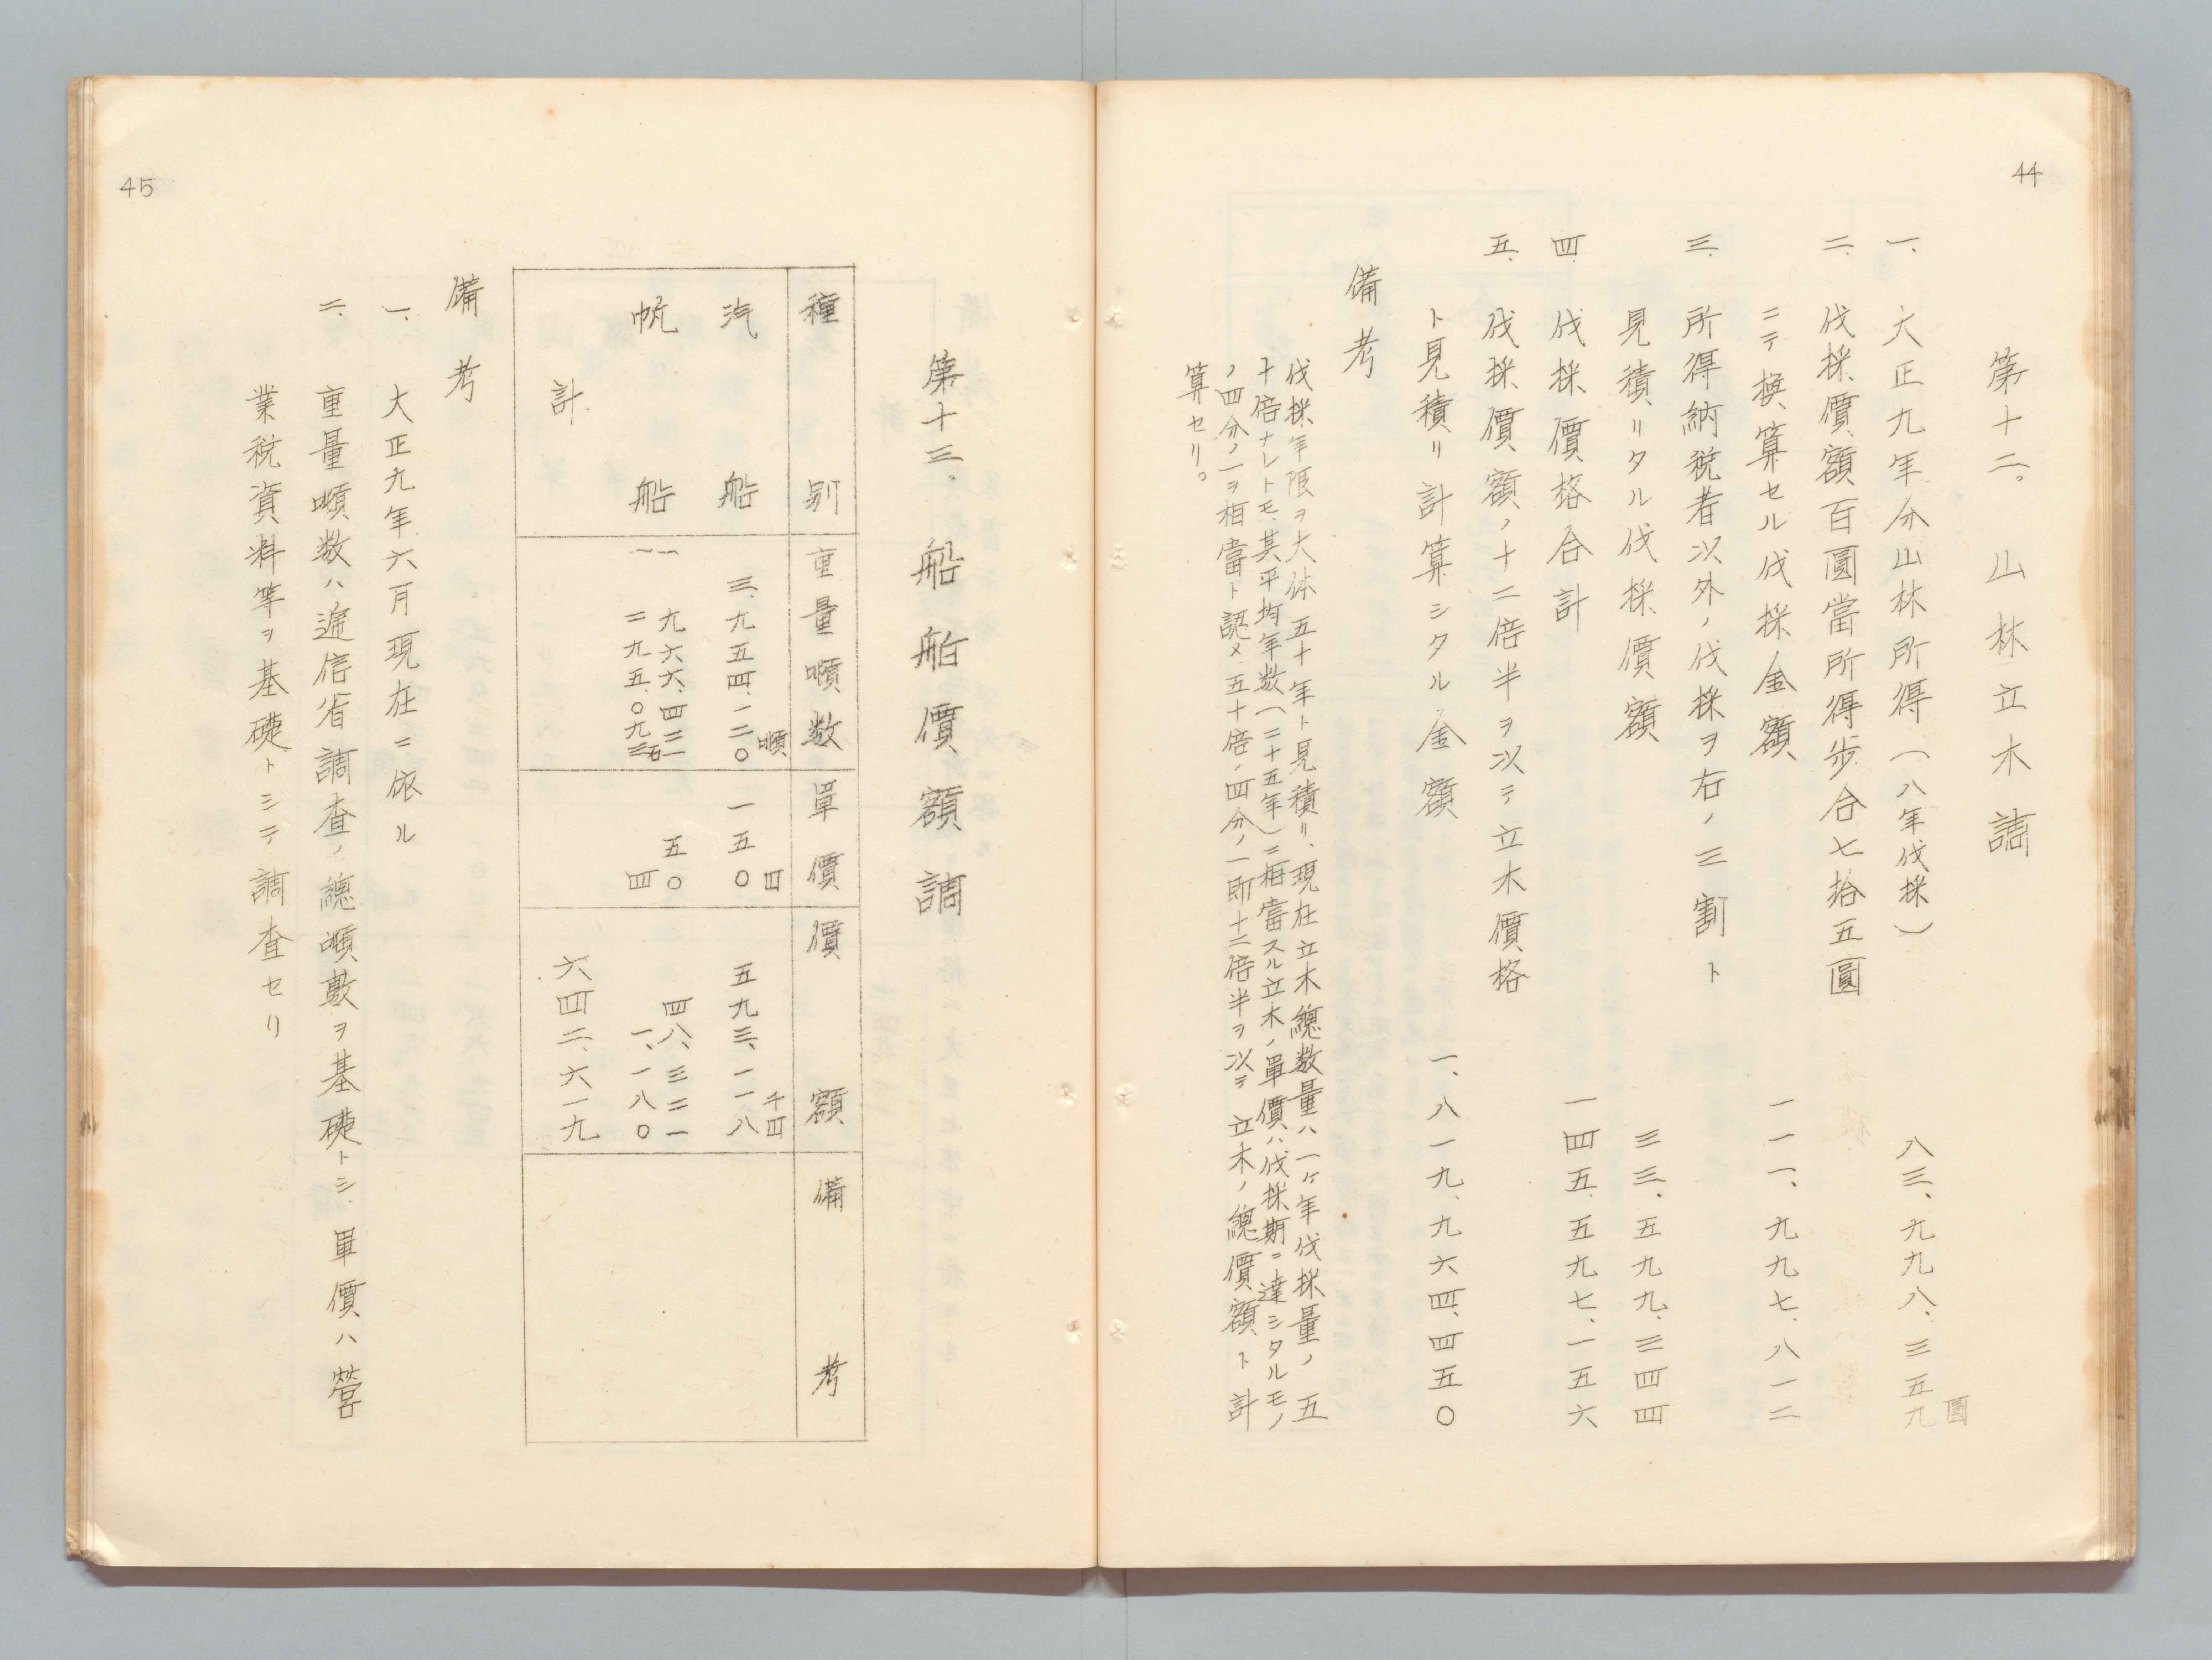 44
第十二。 山林立木調
一、大正九年分山林所得（八年伐採） 八三、九九八、三五九圓
二、伐採價額百圓當所得步合七拾五圓
ニテ換算セル伐採金額 一一一、九九七、八一二
三、所得納稅者以外ノ伐採ヲ右ノ三割ト
見積リタル伐採價額 三三、五九九、三四四
四、伐採價格合計 一四五、五九七、一五六
五、伐採價額ノ十二倍半ヲ以テ立木價格
ト見積リ計算シタル金額 一、八一九、九六四、四五〇
備考
伐採年限ヲ大体五十年ト見積リ、現在立木總数量ハ一ケ年伐採量ノ五
十倍ナレトモ、其平均年数（二十五年）ニ相當スル立木ノ單價ハ伐採期ニ達シタルモノ
ノ四分ノ一ヲ相當ト認メ五十倍ノ四分ノ一即十二倍半ヲ以テ立木ノ總價額ト計
算セリ。
45
第十三、船舶價額調
種別 重量噸数 單價 價額 備考
汽船 三、九五四、一二〇噸 一五〇円 五九三、一一八千円
帆船 九六六、四二一 五〇 四八、三二一
二九五、〇九三石 四 一、一八〇
計 六四二、六一九
備考
一、大正九年六月現在ニ依ル
二、重量噸数ハ遞信省調査ノ總噸數ヲ基礎トシ、單價ハ營
業稅資料等ヲ基礎トシテ調査セリ